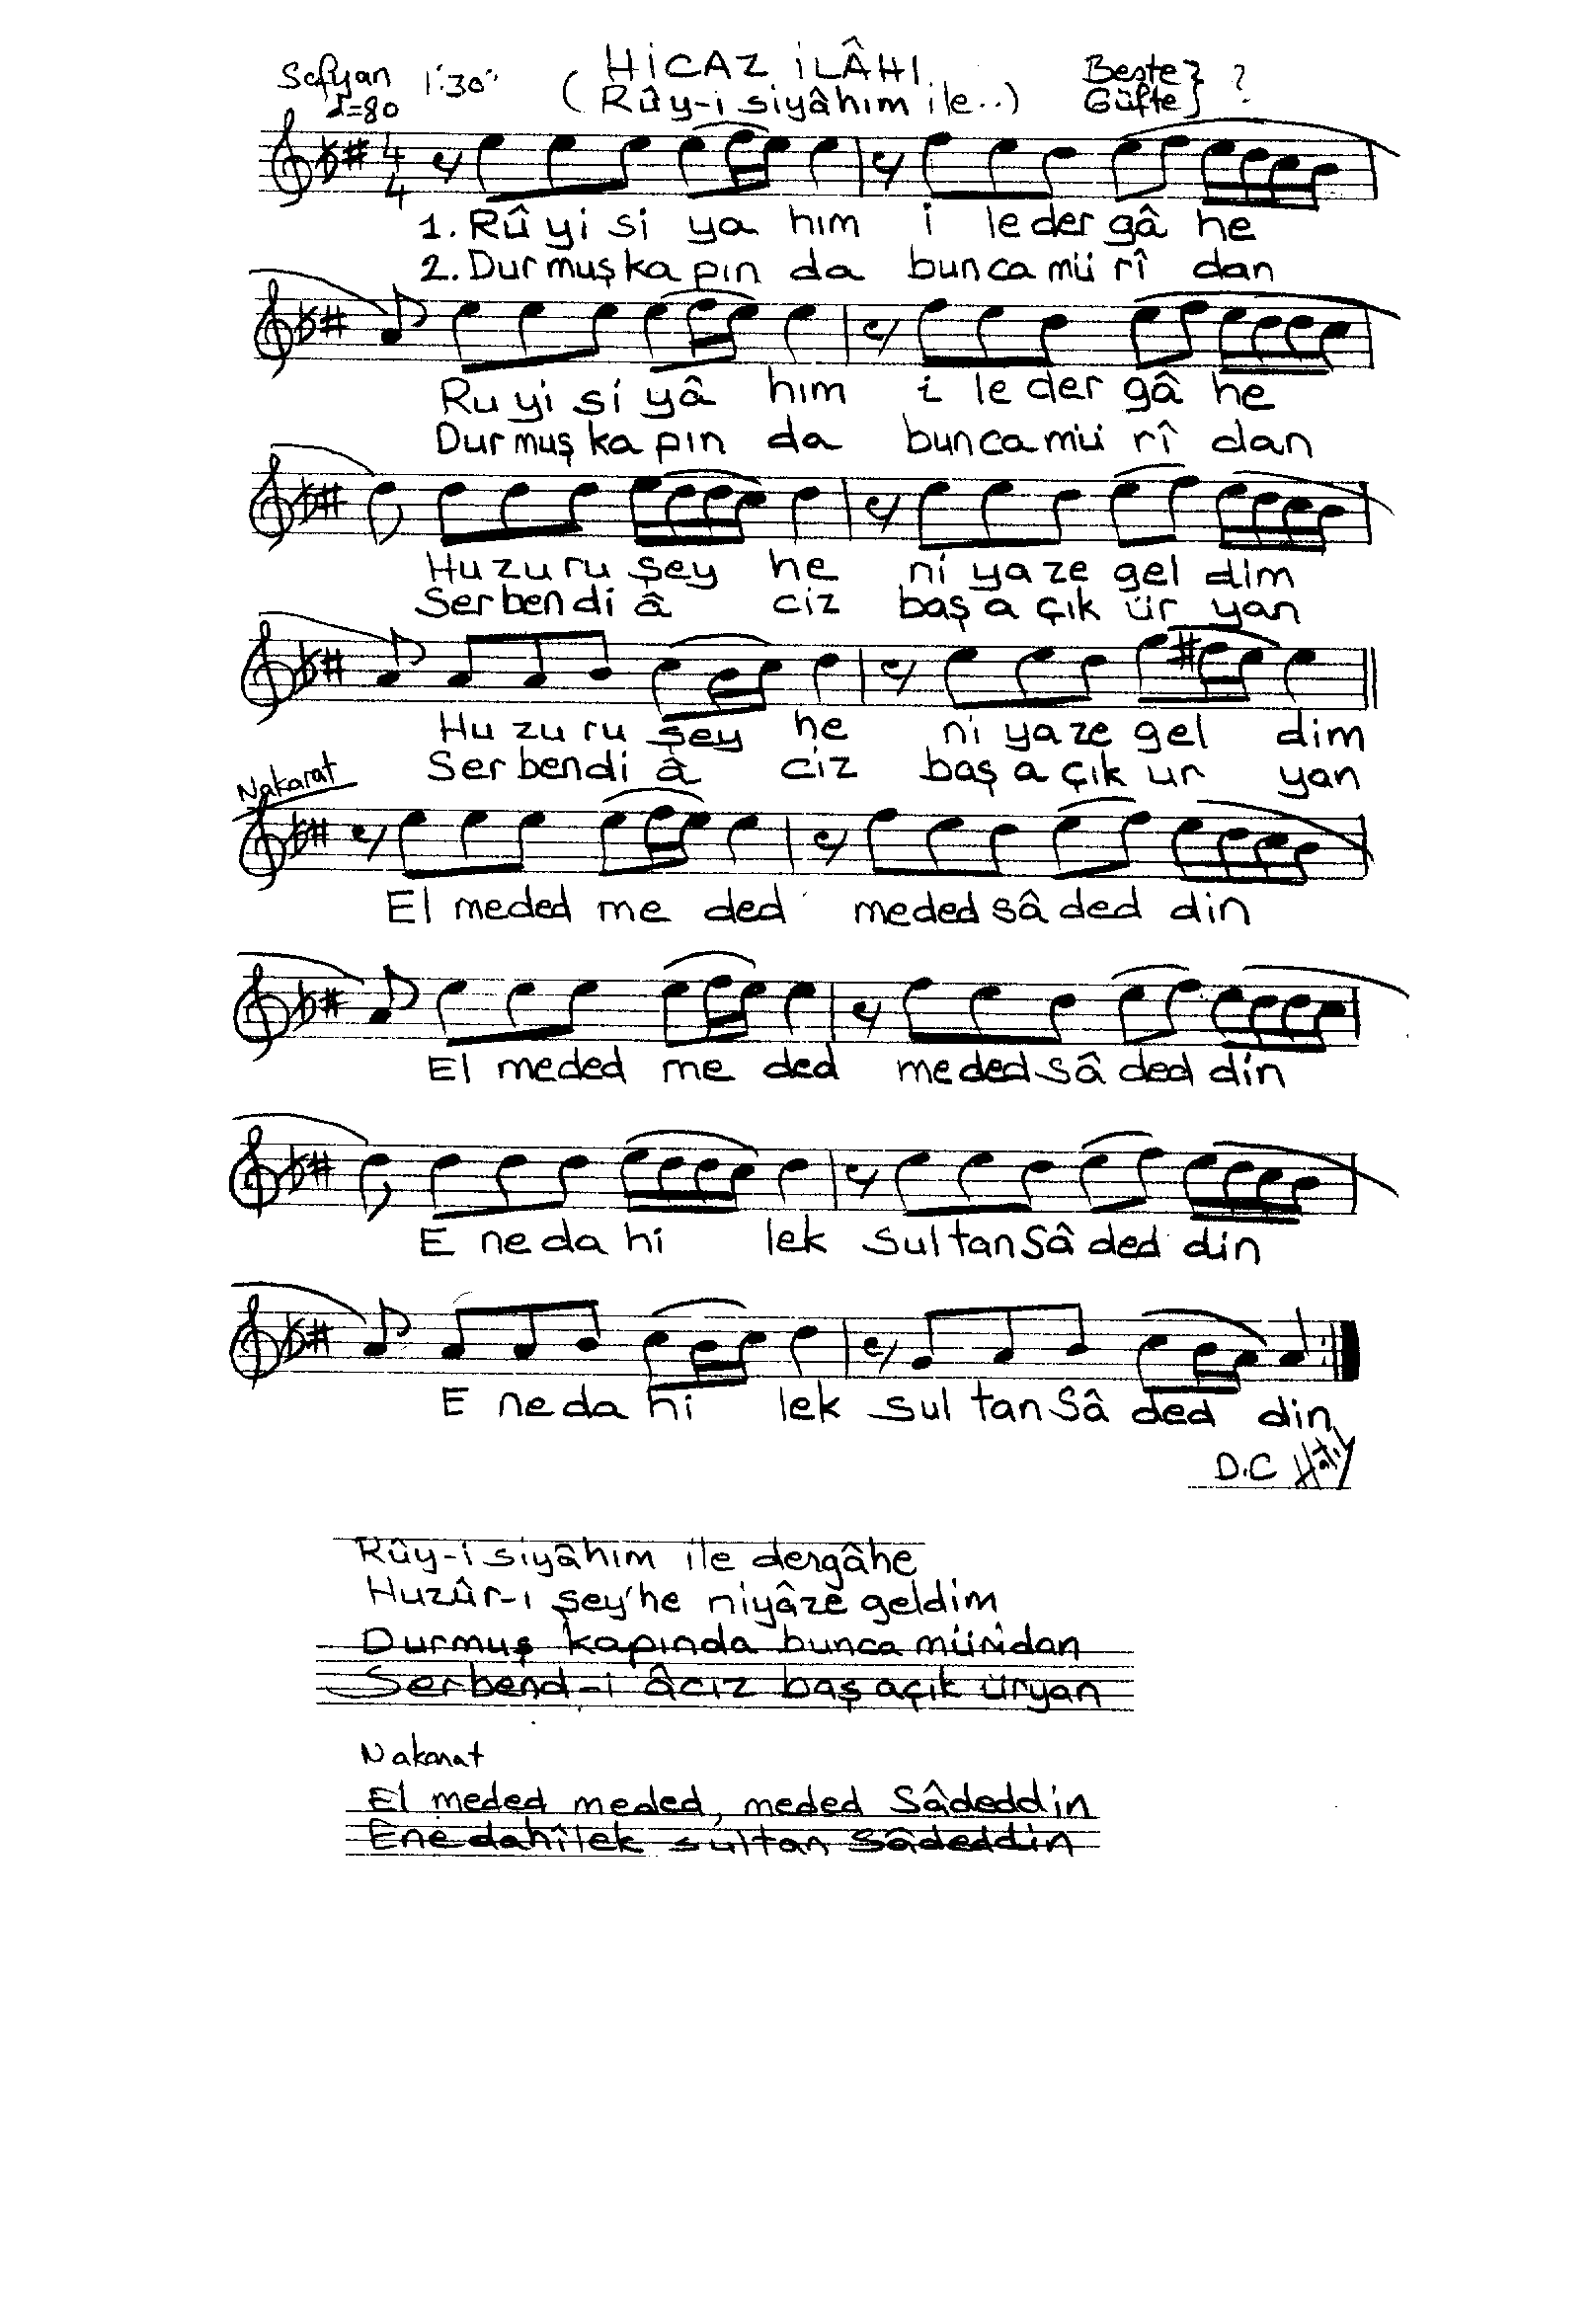 Sofyan 1'.30" HİCAZ İLÂHI Beste } ?
♩=80 (Rûy-i siyâhım ile..) Güfte }
4
4
1. Rû yi si ya hım i le der gâ he
2. Dur muş ka pın da bun ca mü rî dan
Ru yi si yâ hım i le der gâ he
Dur muş ka pın da bun ca mü rî dan
Hu zu ru şey he ni ya ze gel dim
Ser ben di â ciz baş a çık ür yan
Hu zu ru şey he ni ya ze gel dim
Ser ben di â ciz baş a çık ur yan
Nakarat
El meded me ded meded sâ ded din
El meded me ded meded sâ ded din
E ne da hi lek sul tan Sâ ded din
E ne da hi lek sul tan Sâ ded din
D.C
Rûy-i siyâhım ile dergâhe
Huzûr-ı şey'he niyâze geldim
Durmuş kapında bunca müridan
Serbend-i âciz baş açık üryan
Nakarat
El meded meded, meded Sâdeddin
Ene dahîlek sultan Sâdeddin